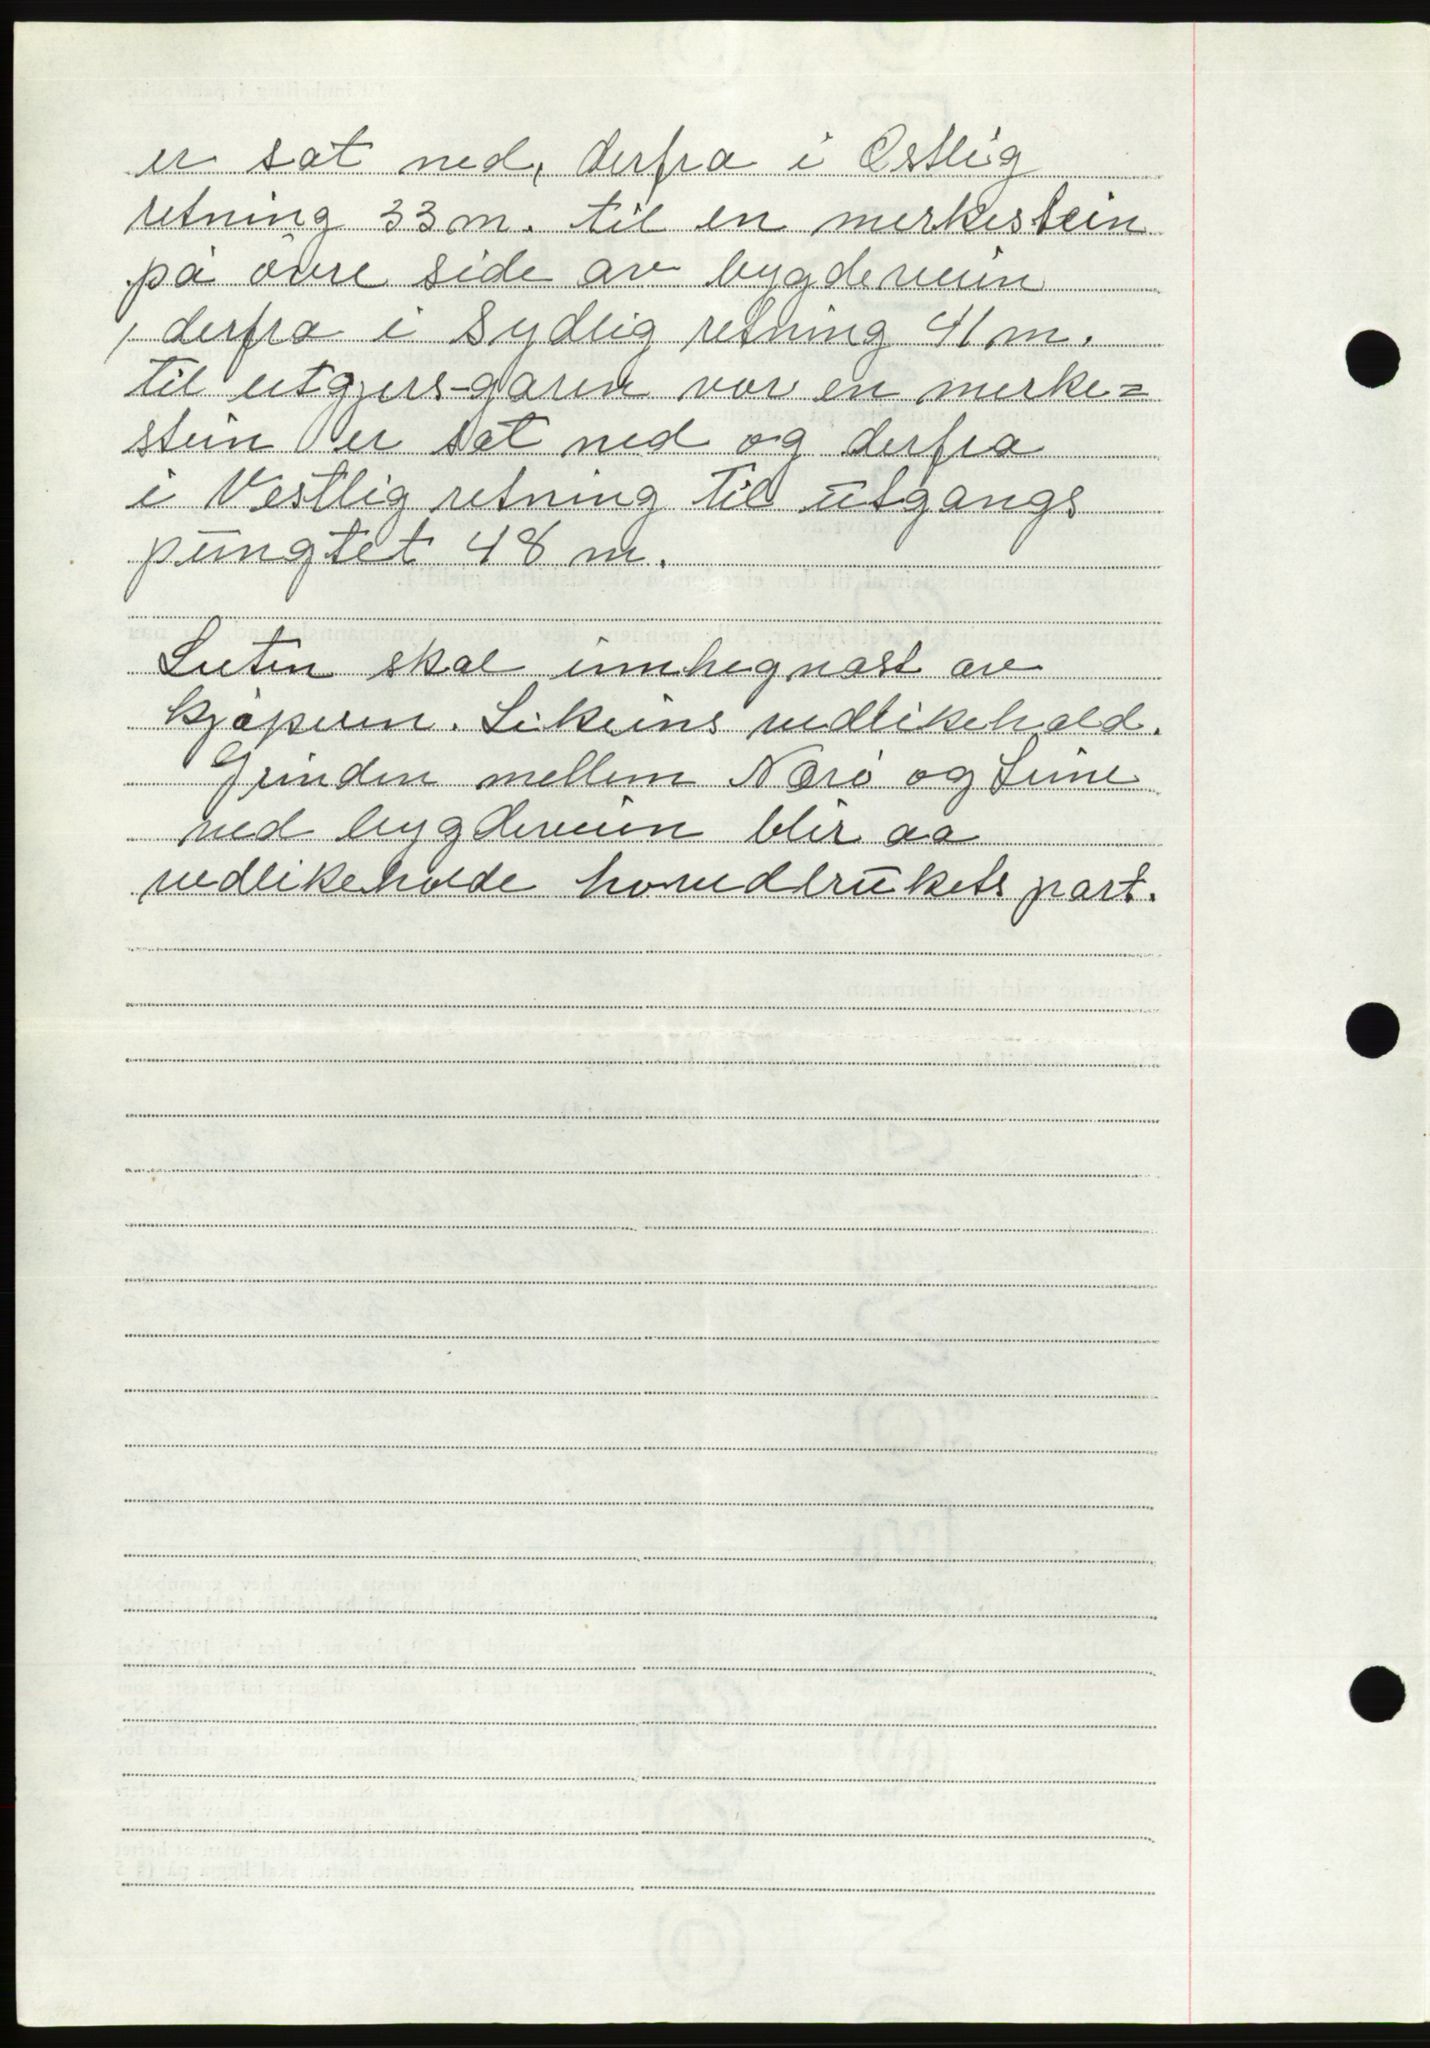 er sat ned, derfra i Østlig
retning 33 m. til en merkestein
på øvre side av bygdeveien
, derfra i Sydlig retning 41 m.
til utgjers-garen vor en merke=
stein er sat ned og derfra
i Vestlig retning til utgangs
pungtet 48 m.
Luten skal innhegnast av
kjøperen. Likeins vedlikehald.
Grinden mellem Nærø og Leine
ved bygdeveien blir aa
vedlikeholde hovedbrukets part.